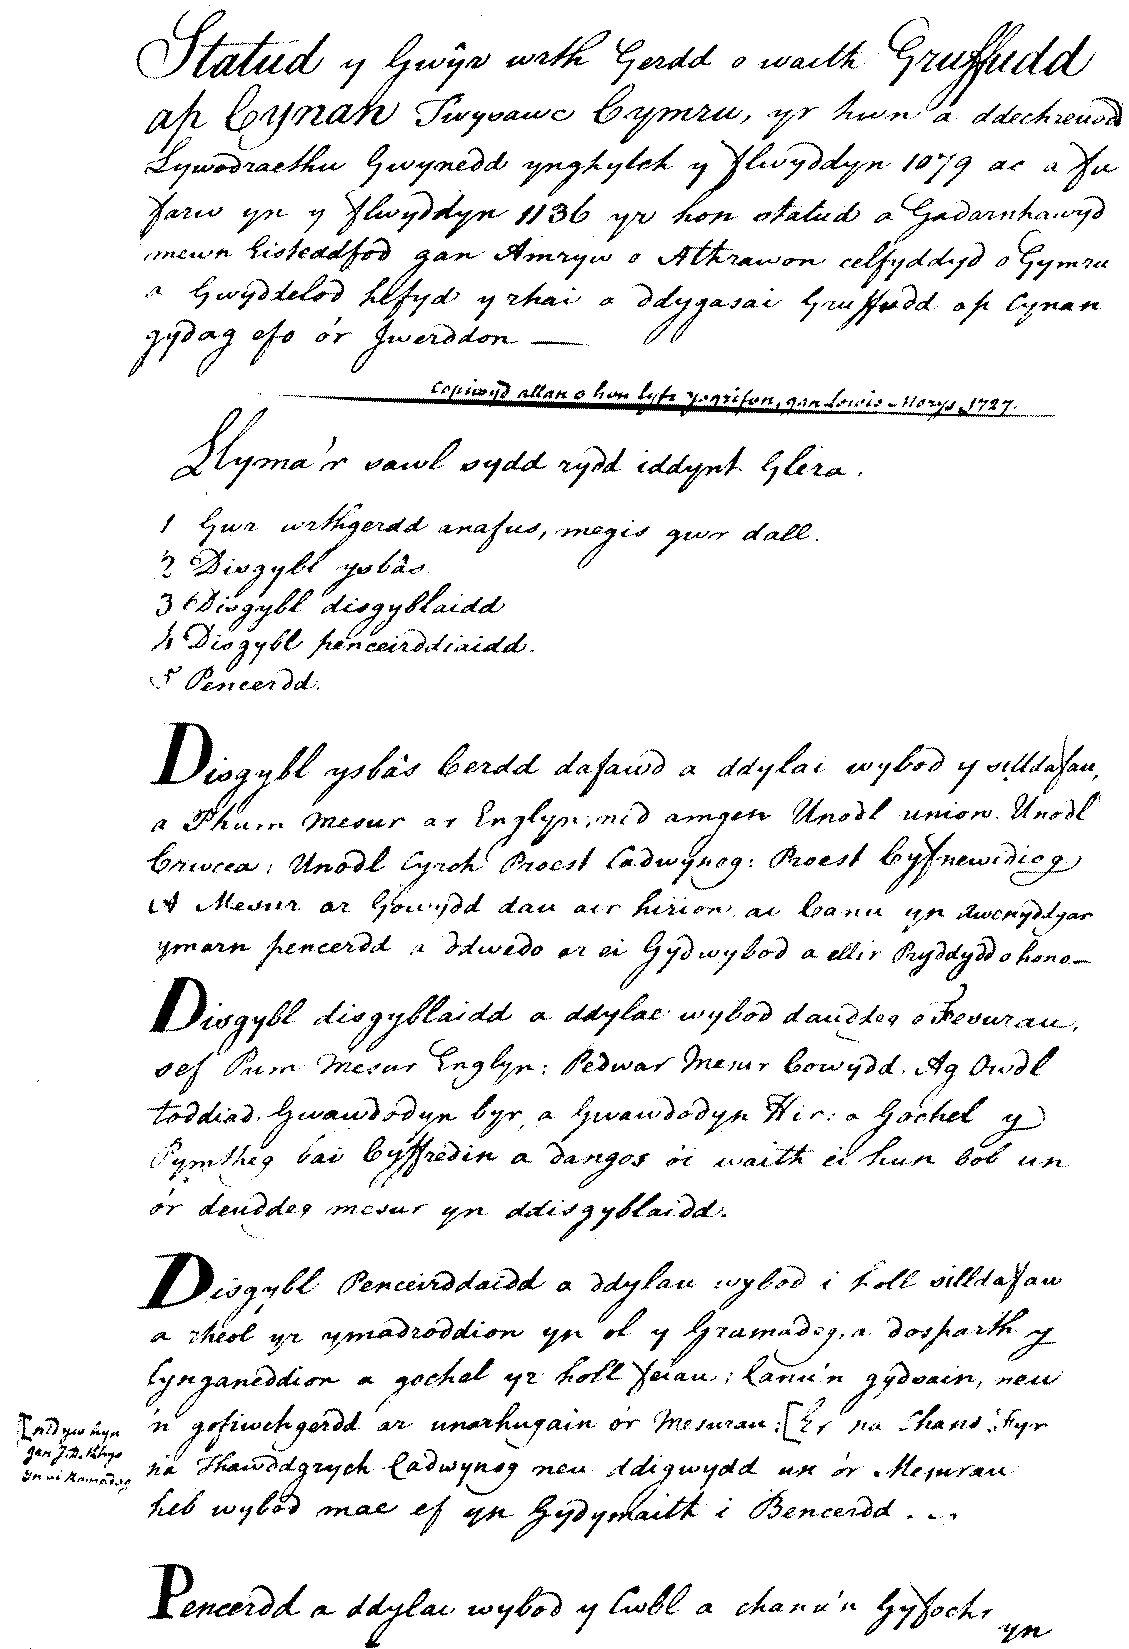 Statud y Gwŷr wrth Gerdd o waith Gruffudd
ap Cynan Twysawc Cymru, yr hwn a ddechreuodd
Lywodraethu Gwynedd ynghylch y flwyddyn 1079 ac a fu
farw yn y flwyddyn 1136 yr hon statud a Gadarnhawyd
mewn Eisteddfod gan Amryw o Athrawon celfyddyd o Gymru
a Gwyddelod hefyd y rhai a ddygasai Gruffudd ap Cynan
gydag efo o'r Jwerddon —
Copiwyd allan o hen lyfr ysgrifen, gan Lewis Morys 1727.
Llyma'r sawl sydd rydd iddynt Glera.
1 Gwr wrthgerdd anafus, megis gwr dall.
2 Disgybl ysbâs
3 Disgybl disgyblaidd
4 Disgybl penceirddiaidd.
5 Pencerdd.
Disgybl ysbâs Cerdd dafawd a ddylai wybod y silldafau,
a Phum Mesur ar Englyn, nid amgen Unodl union. Unodl
Crwcca: Unodl Cyrch Proest Cadwynog: Proest Cyfnewidiog
A Mesur ar Gowydd dau air hirion ai Canu yn Awenyddgar
ymarn pencerdd a ddwedo ar ei Gydwybod a ellir Pryddydd o hono—
Disgybl disgyblaidd a ddylae wybod dauddeg o Fesurau,
sef Pum Mesur Englyn: Pedwar Mesur Cowydd. Ag Owdl
toddiad. Gwawdodyn byr, a Gwawdodyn Hir: a Gochel y
Pymtheg bai Cyffredin a dangos o'i waith ei hun bob un
o'r deuddeg mesur yn ddisgyblaidd.
Disgybl Penceirddaidd a ddylau wybod i holl silldafau
a rheol yr ymadroddion yn ol y Gramadeg, a dosparth y
Cynganeddion a gochel yr holl feiau; Canu'n gydsain, neu
'n gofiwchgerdd ar unarhugain o'r Mesurau: [Er na Chano: Fyr
na Thawddgyrch Cadwynog neu ddigwydd un o'r Mesurau
[nid yw hyn
gan J.D. Rhys
yn ei Ramadeg
heb wybod mae ef yn Gydymaith i Bencerdd . . .
Pencerdd a ddylae wybod y Cwbl a chanu'n Gyfochr
yn